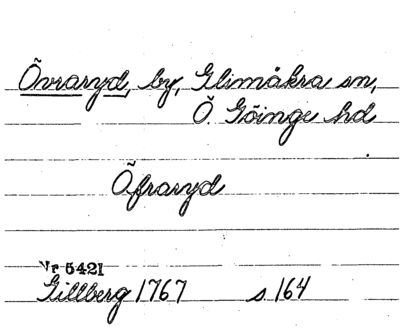 Övraryd, by, Glimåkra sn,
Ö. Göinge hd
Öfraryd
Nr 5421
Gillberg 1767 s. 164